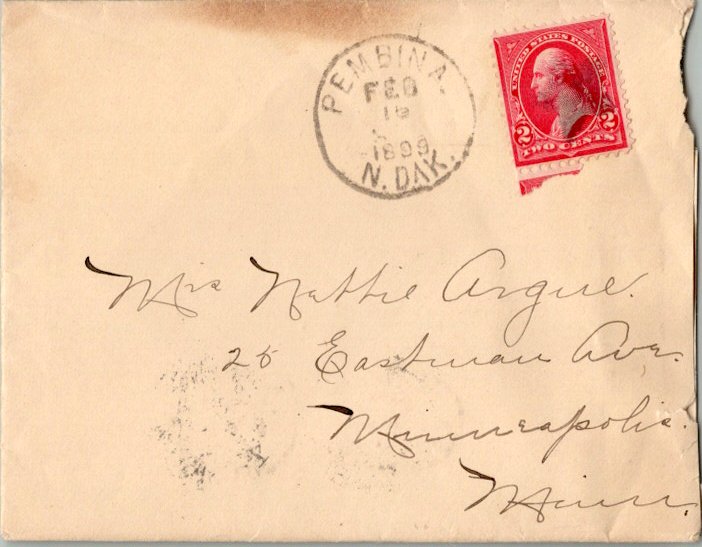 PEMBINA.
FEB
1899
N. DAK.
UNITED STATES POSTAGE
2 2
TWO CENTS
Nettie Argue.
25 Eastman Ave.
Minneapolis.
Minn.